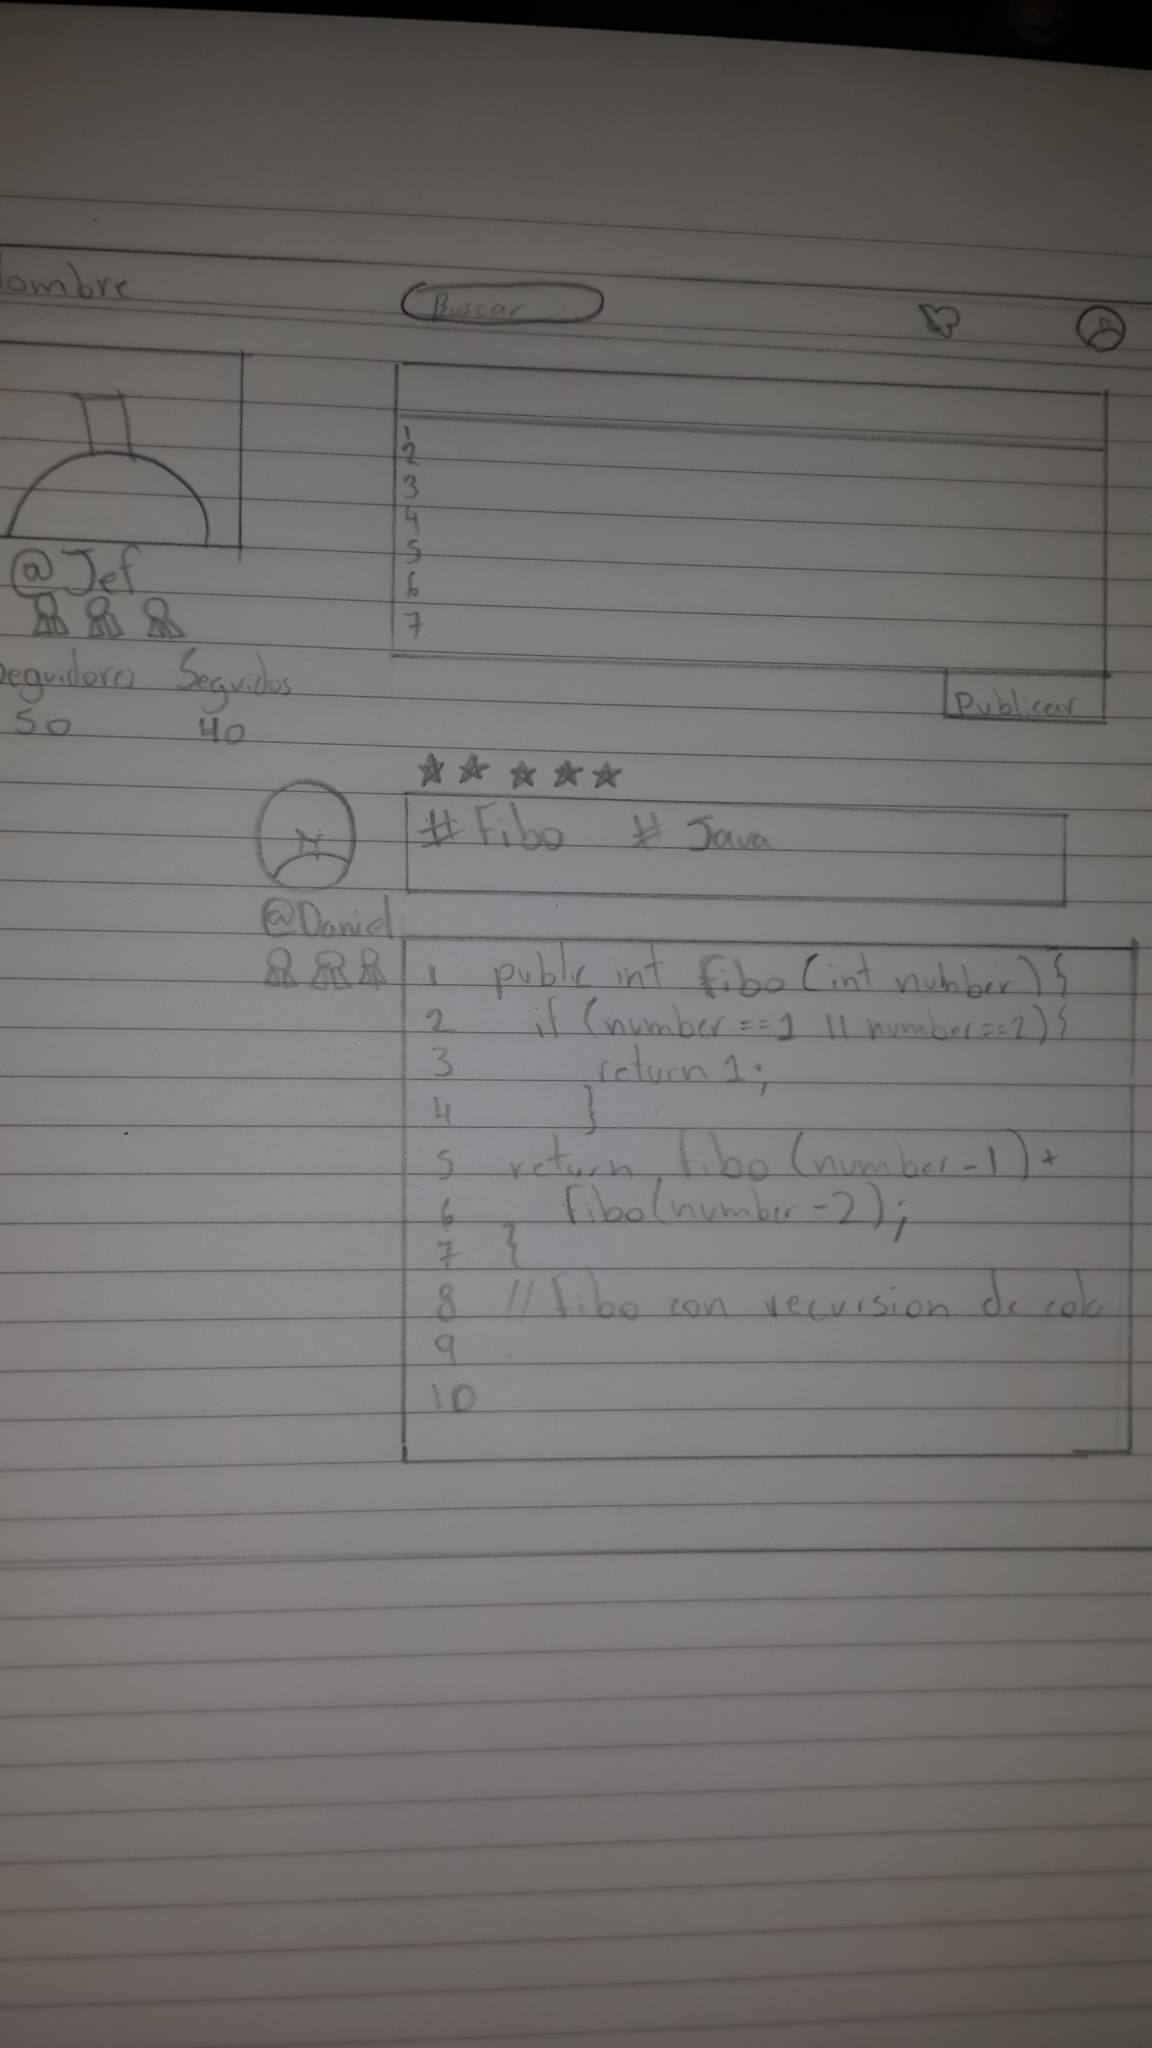 Nombre
Buscar
1
2
3
4
5
6
7
@Jef
Seguidores Seguidos
50 40
Publicar
#Fibo #Java
@Daniel
1 public int fibo (int number) {
2 if (number == 1 || number == 2) {
3 return 1;
4 }
5 return fibo (number - 1) +
6 fibo (number - 2);
7 }
8 // fibo con recursion de cola
9
10